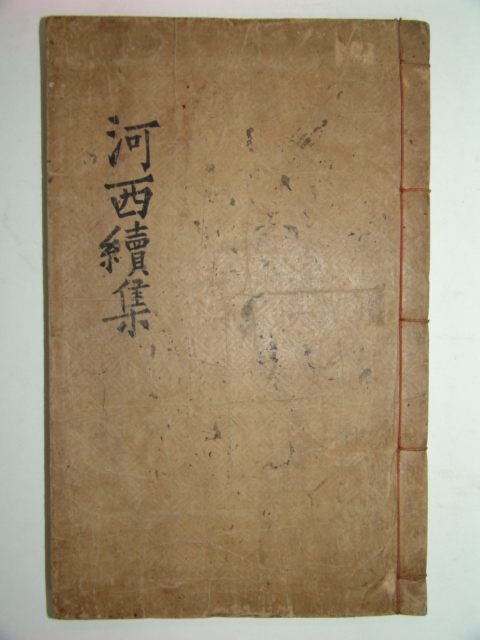 河西續集